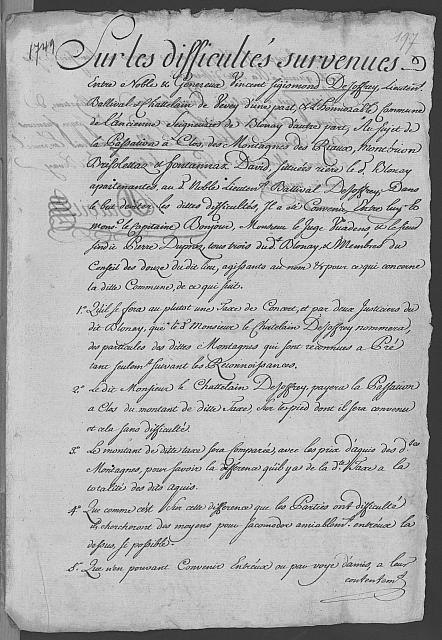 1749
197
Sur les difficultés survenues
Entre Noble & Genereux Vincent Sigismond DeJoffrey, Lieuten.t
Ballival & Chattelain de Vevey d'une part, & l'honnorable Commune
de l'ancienne Seigneurie de Blonay d'autre part, Au sujet de
la Passation à Clos, des Montagnes des Pleiaux, Montbrion
et Fontannaz David, situées rière le d.t Blonay
apartenantes, au d.t Noble Lieuten.t Ballival DeJoffrey, Dans
le but d'eviter les dittes difficultés, Il a été Convenu Entre luy &
mons.r le Capitaine Bonjour, Monsieur le Juge et le sieur
sindic Pierre Dupraz, tous trois du d.t Blonay, & Membres du
Conseil des douze du dit lieu, agissants au nom & pour ce qui concerne
la ditte Commune, de ce qui suit.
1.° Qu'il se fera au plutot une Taxe de Concert, et par deux Justiciers du
dit Blonay, que le d.t Monsieur le Chatelain DeJoffrey nommera,
des particules des dittes Montagnes qui sont reconnues a Pré
tant seulem.t suivant les Reconnoissances.
2.° Le dit Monsieur le Chattelain DeJoffrey, payera la Passation
a Clos du montant de ditte Taxe, sur le pied dont il sera convenu
et cela sans difficulté.
3.° Le montant de ditte taxe sera Comparé, avec les prix d'aquis des d.tes
Montagnes, pour savoir la difference qu'il y a de la d.te Taxe a la
totalité des dits aquis.
4.° Que comme c'est sur cette difference que les Parties ont difficulté
ils chercheront des moyens pour s'acomoder amiablem.t entreux la
dessus, si possible.
5.° Que n'en pouvant Convenir Entreux ou par voye d'amis, a leur
contentem.t